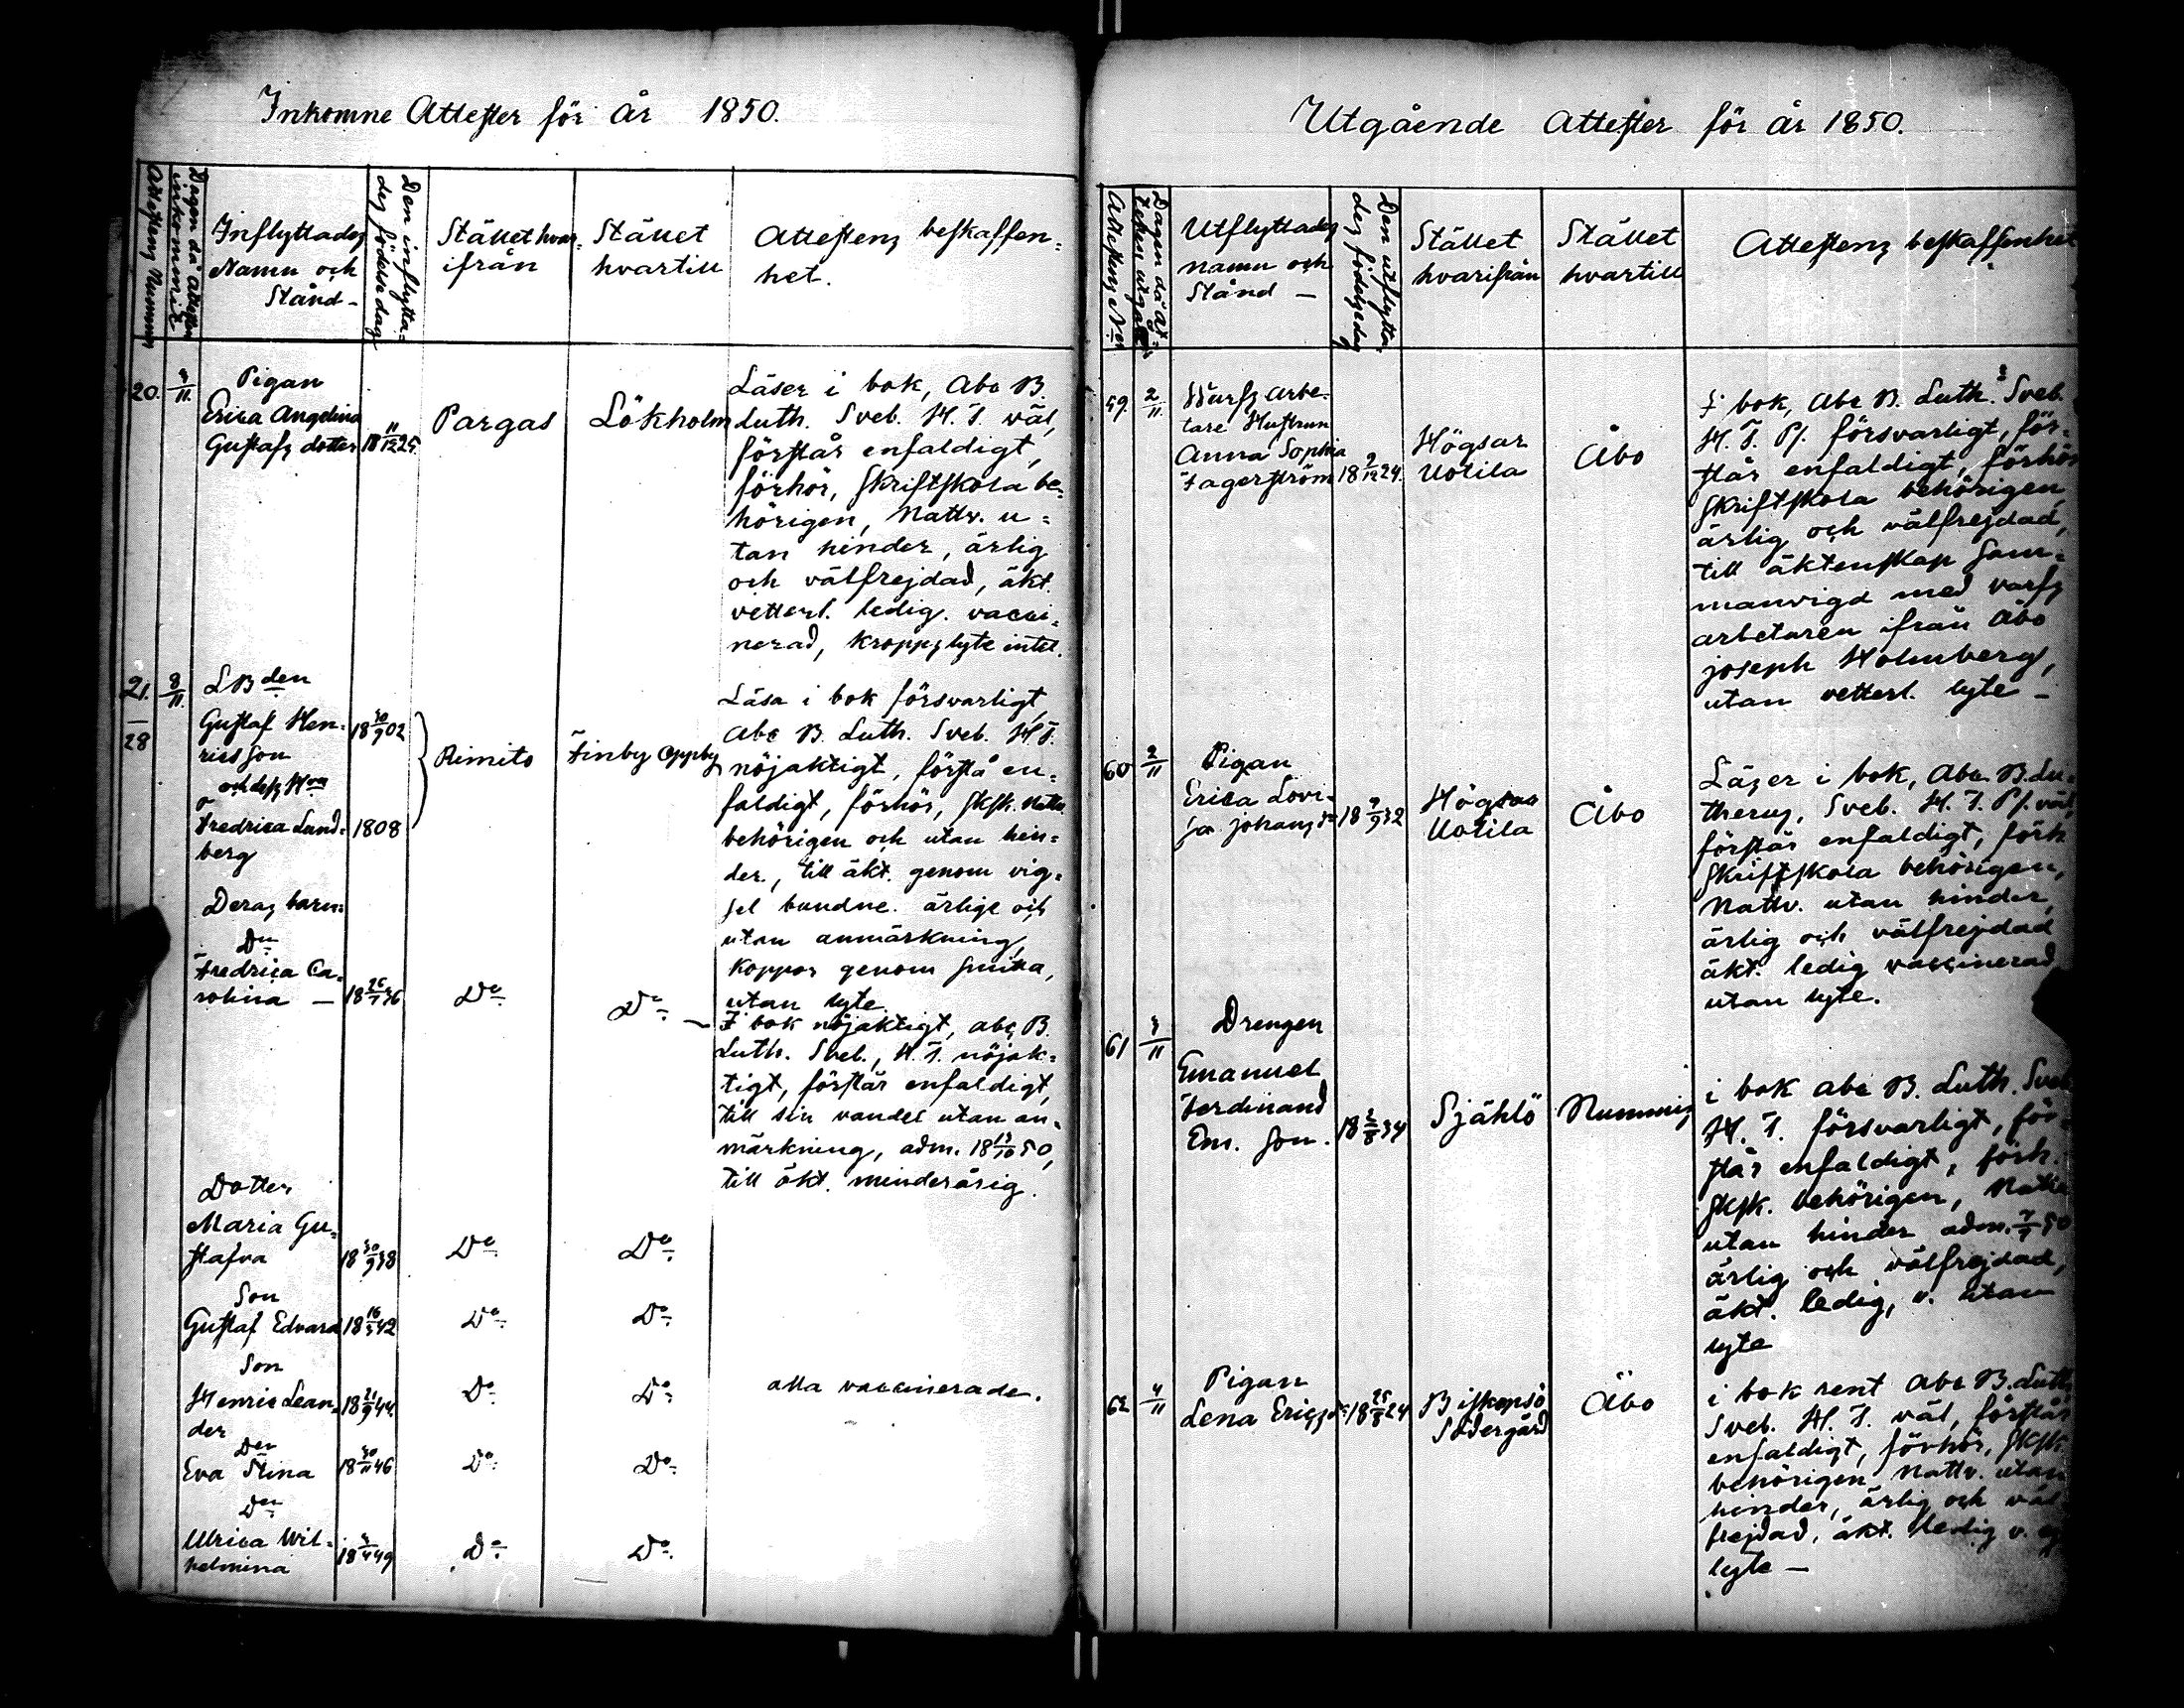 Inkomne Attester för År 1850.
Attestens Nummer
Dagen då Attesten inkommit
Inflyttades
Namn och
Stånd -
Den inflytta=
des födelsedag
Stället hvar=
ifrån
Stället
hvartill
Attestens beskaffen=
het.
20.
3/11.
Pigan
Erica Angelina
Gustafs dotter
18 11/12 25.
Pargas
Lökholm
Läser i bok, Abc B.
Luth. Sveb. H. T. väl,
förstår enfaldigt,
förhör, skriftskola be=
hörigen, Nattv. u=
tan hinder, ärlig
och välfrejdad, äkt.
vetterl. ledig. vacci=
nerad, kroppslyte intet.
21.
—
28
8/11.
LBden
Gustaf Hen=
ricsson
18 30/9 02
och dess Hu
Fredrica Lund=
berg
1808
Rimito
Finby Oppby
Läsa i bok försvarligt,
Abc B. Luth. Sveb. H T.
nöjaktigt, förstå en=
faldigt, förhör, sksk. Nattv.
behörigen och utan hin=
der, till äkt. genom vig=
sel bundne. ärlige och
utan anmärkning,
koppor genom smitta,
utan lyte
Deras barn:
Dn
Fredrica Ca=
rolina —
18 26/7 36
Do
Do
I bok nöjaktigt, abc B.
Luth. Sveb., H. T. nöjak=
tigt, förstår enfaldigt,
till sin vandel utan an=
märkning, adm. 18 13/10 50,
till äkt. minderårig.
Dotter
Maria Gu=
stafva
18 30/9 38
Do
Do
Son
Gustaf Edvard
18 16/3 42
Do
Do
Son
Henric Lean=
der
18 21/9 44.
Do
Do
alla vaccinerade.
Den
Eva Stina
18 30/11 46
Do
Do
Den
Ulrica Wil=
helmina
18 4/4 49
Do
Do
Utgående Attester för år 1850.
Attestens No
Dagen då At=
testen utgått
Utflyttades
namn och
Stånd —
Den utflytta=
des födelsedag
Stället
hvarifrån
Stället
hvartill
Attestens beskaffenhet
59.
2/11.
Warfs Arbe=
tare Hustrun
Anna Sophia
Fagerström
18 9/12 24.
Högsar
Uotila
Åbo
I bok, Abc B. Luth. Sveb.
H. T. Ps. försvarligt, för=
står enfaldigt, förhör
skriftskola behörigen,
ärlig och välfrejdad,
till äktenskap sam=
manvigd med varfs
arbetaren ifrån Åbo
joseph Holmberg,
utan vetterl. lyte —
60
2/11
Pigan
Erica Lovi=
sa johans dr
18 7/9 32
Högsar
Uotila
Åbo
Läser i bok, Abc. B. Lu=
therus, Sveb. H. T. Ps. väl,
förstår enfaldigt, förh.
skriftskola behörigen,
Nattv. utan hinder,
ärlig och välfrejdad
äkt. ledig vaccinerad
utan lyte.
61
3/11
Drengen
Emanuel
Ferdinand
Em. son.
18 2/8 34
Själilö
Nummis
i bok abc B. Luth. Sveb.
H. T. försvarligt, för=
står enfaldigt, förh.
sksk. behörigen, Nattv.
utan hinder adm. 7/7 50
ärlig och välfrejdad,
äkt. ledig, v. utan
lyte
62
4/11
Pigan
Lena Erics dr
18 25/8 24
Biskopsö
Södergård
Åbo
i bok rent abc B. Luth.
Sveb. H. T. väl, förstår
enfaldigt, förhör, sksk.
behörigen Nattv. utan
hinder, ärlig och väl
frejdad, äkt. ledig v. ej
lyte —